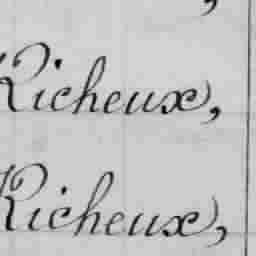 Richeux,
Richeux,